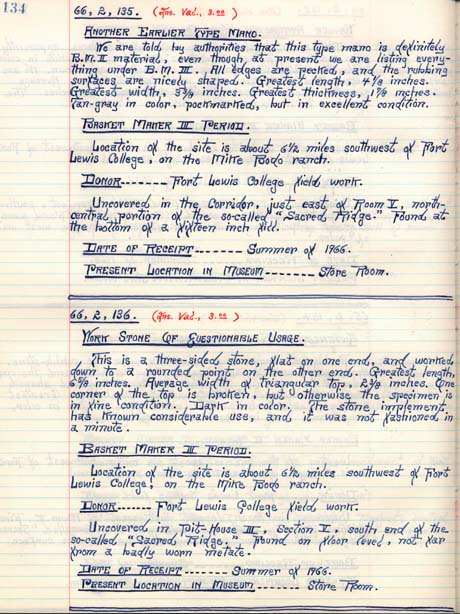 134
66, 2, 135. (Ins. Val., 3.00)
Another Earlier Type Mano.
We are told by authorities that this type mano is definitely
B.M. II material, even though at present we are listing every-
thing under B.M. III. All edges are pecked, and the rubbing
surfaces are nicely shaped. Greatest length, 4 7/8 inches.
Greatest width, 3 3/4 inches. Greatest thickness, 1 7/8 inches.
Tan-gray in color, pockmarked, but in excellent condition.
Basket Maker III Period.
Location of the site is about 6 1/2 miles southwest of Fort
Lewis College, on the Mike Bodo ranch.
Donor------- Fort Lewis College field work.
Uncovered in the Corridor, just east of Room I, north-
central portion of the so-called "Sacred Ridge." Found at
the bottom of a fifteen inch fill.
Date of Receipt------- Summer of 1966.
Present Location in Museum------ Store Room.
66, 2, 136. (Ins. Val., 3.00)
Work Stone Of Questionable Usage.
This is a three-sided stone, flat on one end, and worked
down to a rounded point on the other end. Greatest length,
6 5/8 inches. Average width of triangular top, 2 3/8 inches. One
corner of the top is broken, but otherwise the specimen is
in fine condition. Dark in color. The stone implement
has known considerable use, and it was not fashioned in
a minute.
Basket Maker III Period.
Location of the site is about 6 1/2 miles southwest of Fort
Lewis College, on the Mike Bodo ranch.
Donor----- Fort Lewis College field work.
Uncovered in Pit-House III, Section V, south end of the
so-called "Sacred Ridge." Found on floor level, not far
from a badly worn metate.
Date of Receipt------ Summer of 1966.
Present Location in Museum------- Store Room.